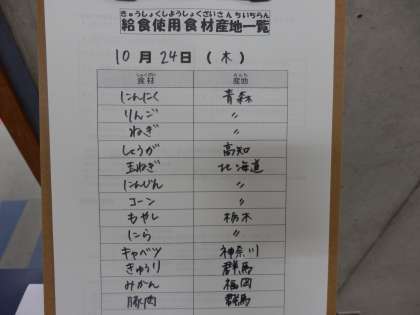 きゅうしょくしようしょくざいさんちいちらん
給食使用食材産地一覧
10月24日(木)
しょくざい さんち
食材 産地
にんにく 青森
りんご 〃
ねぎ 〃
しょうが 高知
玉ねぎ 北海道
にんじん 〃
コーン 〃
もやし 栃木
にら 〃
キャベツ 神奈川
きゅうり 群馬
みかん 福岡
豚肉 群馬